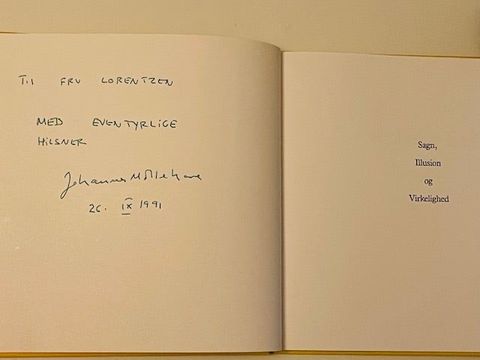 Til FRU LORENTZEN
MED EVENTYRLIGE
HILSNER
Johannes Møllehave
26. IX 1991
Sagn,
Illusion
og
Virkelighed